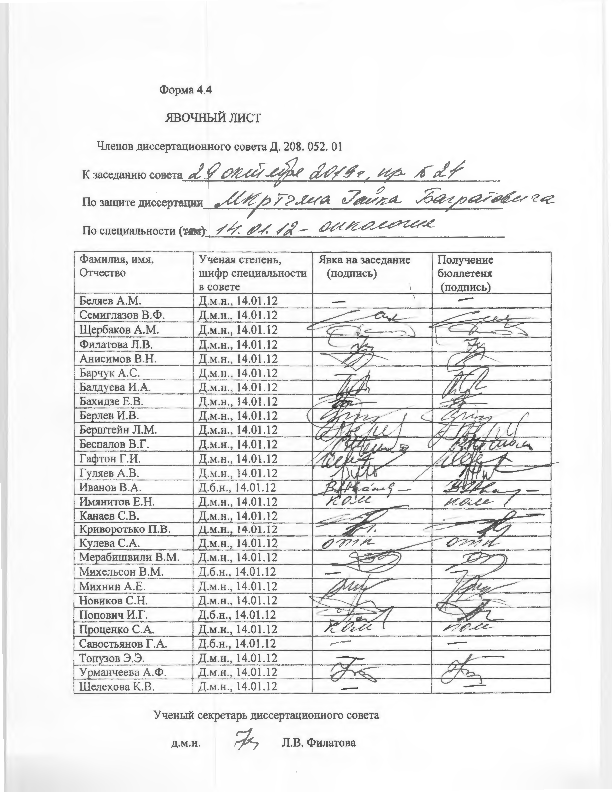 Форма 4.4
ЯВОЧНЫЙ ЛИСТ
Членов диссертационного совета Д. 208. 052. 01
К заседанию совета 29 октября 2019 г, пр № 24
По защите диссертации Мкртчяна Гайка Багратовича
По специальности (там) 14.01.12 - онкология
Фамилия, имя, Отчество Ученая степень, шифр специальности в совете Явка на заседание (подпись) Получение бюллетеня (подпись)
Беляев А.М. Д.м.н., 14.01.12 — —
Семиглазов В.Ф. Д.м.н., 14.01.12
Щербаков А.М. Д.м.н., 14.01.12
Филатова Л.В. Д.м.н., 14.01.12
Анисимов В.Н. Д.м.н., 14.01.12
Барчук А.С. Д.м.н., 14.01.12
Балдуева И.А. Д.м.н., 14.01.12
Бахидзе Е.В. Д.м.н., 14.01.12
Берлев И.В. Д.м.н., 14.01.12
Берштейн Л.М. Д.м.н., 14.01.12
Беспалов В.Г. Д.м.н., 14.01.12
Гафтон Г.И. Д.м.н., 14.01.12
Гуляев А.В. Д.м.н., 14.01.12
Иванов В.А. Д.б.н., 14.01.12
Имянитов Е.Н. Д.м.н., 14.01.12
Канаев С.В. Д.м.н., 14.01.12
Криворотько П.В. Д.м.н., 14.01.12
Кулева С.А. Д.м.н., 14.01.12
Мерабишвили В.М. Д.м.н., 14.01.12
Михельсон В.М. Д.б.н., 14.01.12 — —
Михнин А.Е. Д.м.н., 14.01.12
Новиков С.Н. Д.м.н., 14.01.12
Попович И.Г. Д.б.н., 14.01.12
Проценко С.А. Д.м.н., 14.01.12
Савостьянов Г.А. Д.б.н., 14.01.12 — —
Топузов Э.Э. Д.м.н., 14.01.12
Урманчеева А.Ф. Д.м.н., 14.01.12
Шелехова К.В. Д.м.н., 14.01.12 — —
Ученый секретарь диссертационного совета
д.м.н. Л.В. Филатова